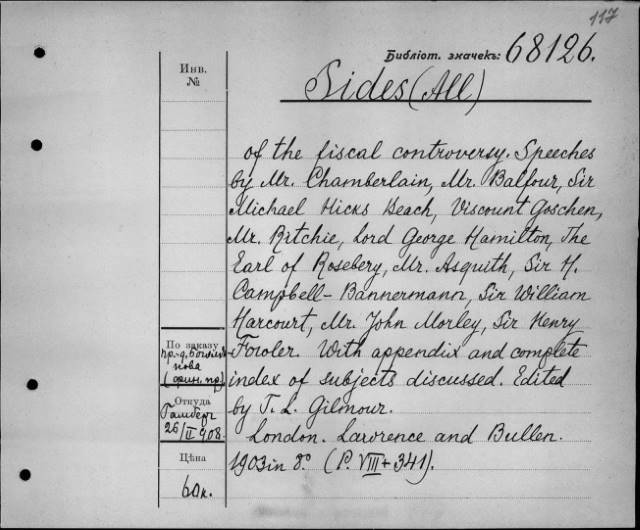 117
Библіот. значекъ: 68126.
Инв.
№
Sides (All)
of the fiscal controversy. Speeches
by Mr. Chamberlain, Mr. Balfour, Sir
Michael Hicks Beach, Viscount Goschen,
Mr. Ritchie, Lord George Hamilton, The
Earl of Rosebery, Mr. Asquith, Sir H.
Campbell-Bannermann, Sir William
Harcourt, Mr. John Morley, Sir Henry
Fowler. With appendix and complete
index of subjects discussed. Edited
by T. L. Gilmour.
London. Lawrence and Bullen.
1903 in 8º. (P. VIII + 341).
По заказу
пр-д.
Откуда
26/II 908.
Цѣна
60 к.